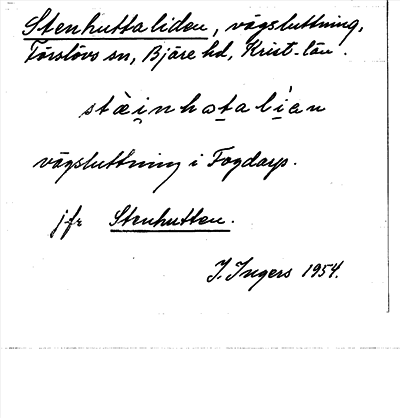 Stenhuttaliden, vägsluttning,
Förslövs sn, Bjäre hd, Krist-län.
vägsluttning i Fogdarp.
jfr Stenhutten.
J. Ingers 1954.